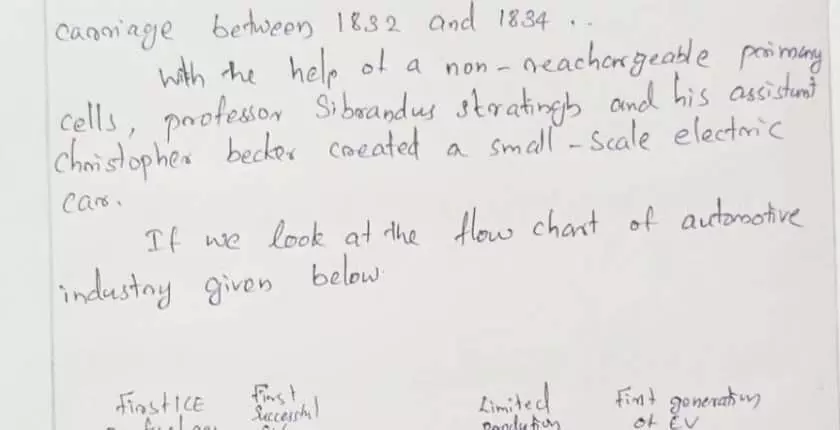 carriage between 1832 and 1834 ..
With the help of a non-reachargeable primary
cells, professor Sibrandus stratingh and his assistant
Christopher becker created a small-scale electric
car.
If we look at the flow chart of automotive
industry given below
First ICE
First
Successful
Limited
First generation
of EV